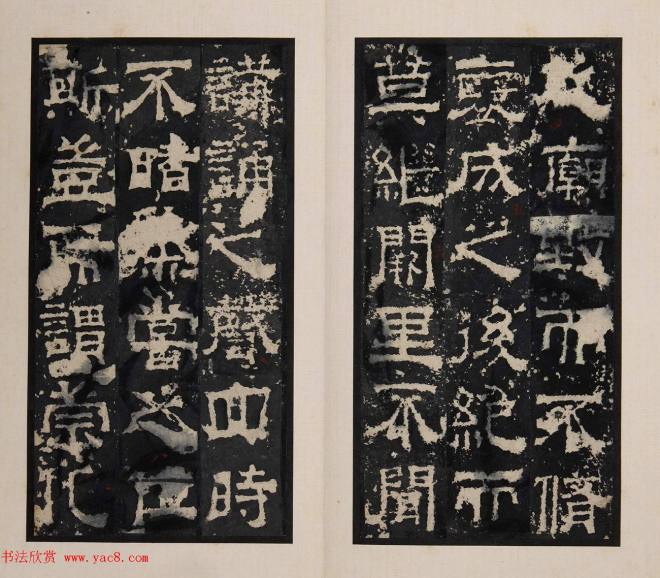 之廟毀而不脩
褒成之後絕而
莫繼闕里不聞
講誦之聲四時
不睹蒸嘗之位
斯豈所謂崇礼
书法欣赏 www.yac8.com